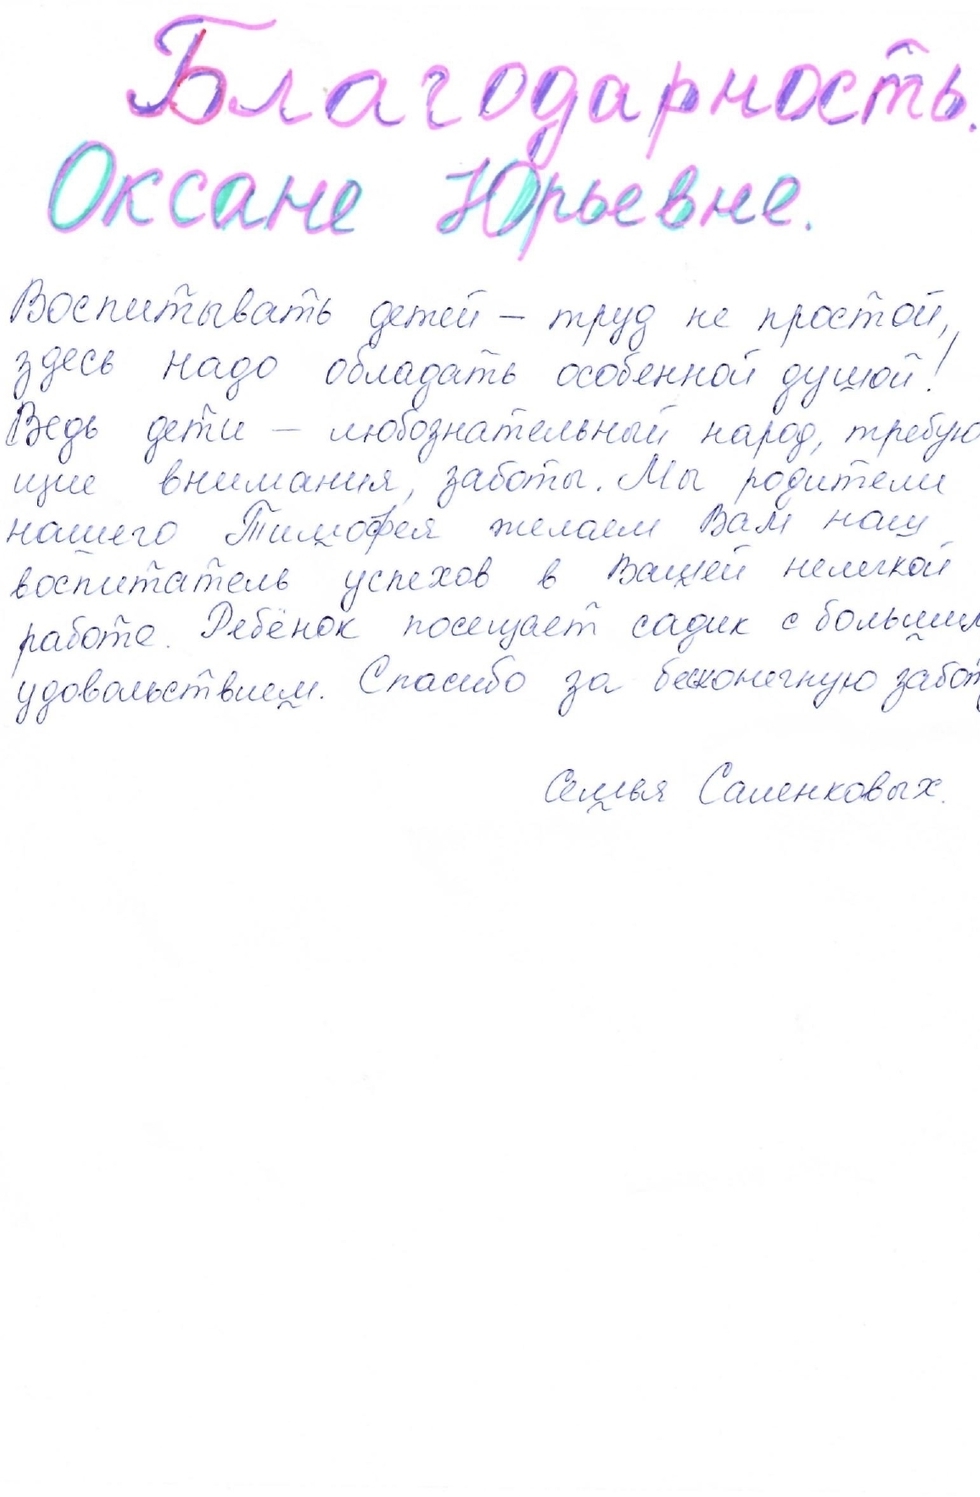 Благодарность.
Оксане Юрьевне.
Воспитывать детей – труд не простой,
здесь надо обладать особенной душой!
Ведь дети – любознательный народ, требую
щие внимания, заботы. Мы родители
нашего Тимофея желаем Вам наш
воспитатель успехов в Вашей нелегкой
работе. Ребёнок посещает садик с большим
удовольствием. Спасибо за бесконечную забот
Семья Саленковых.